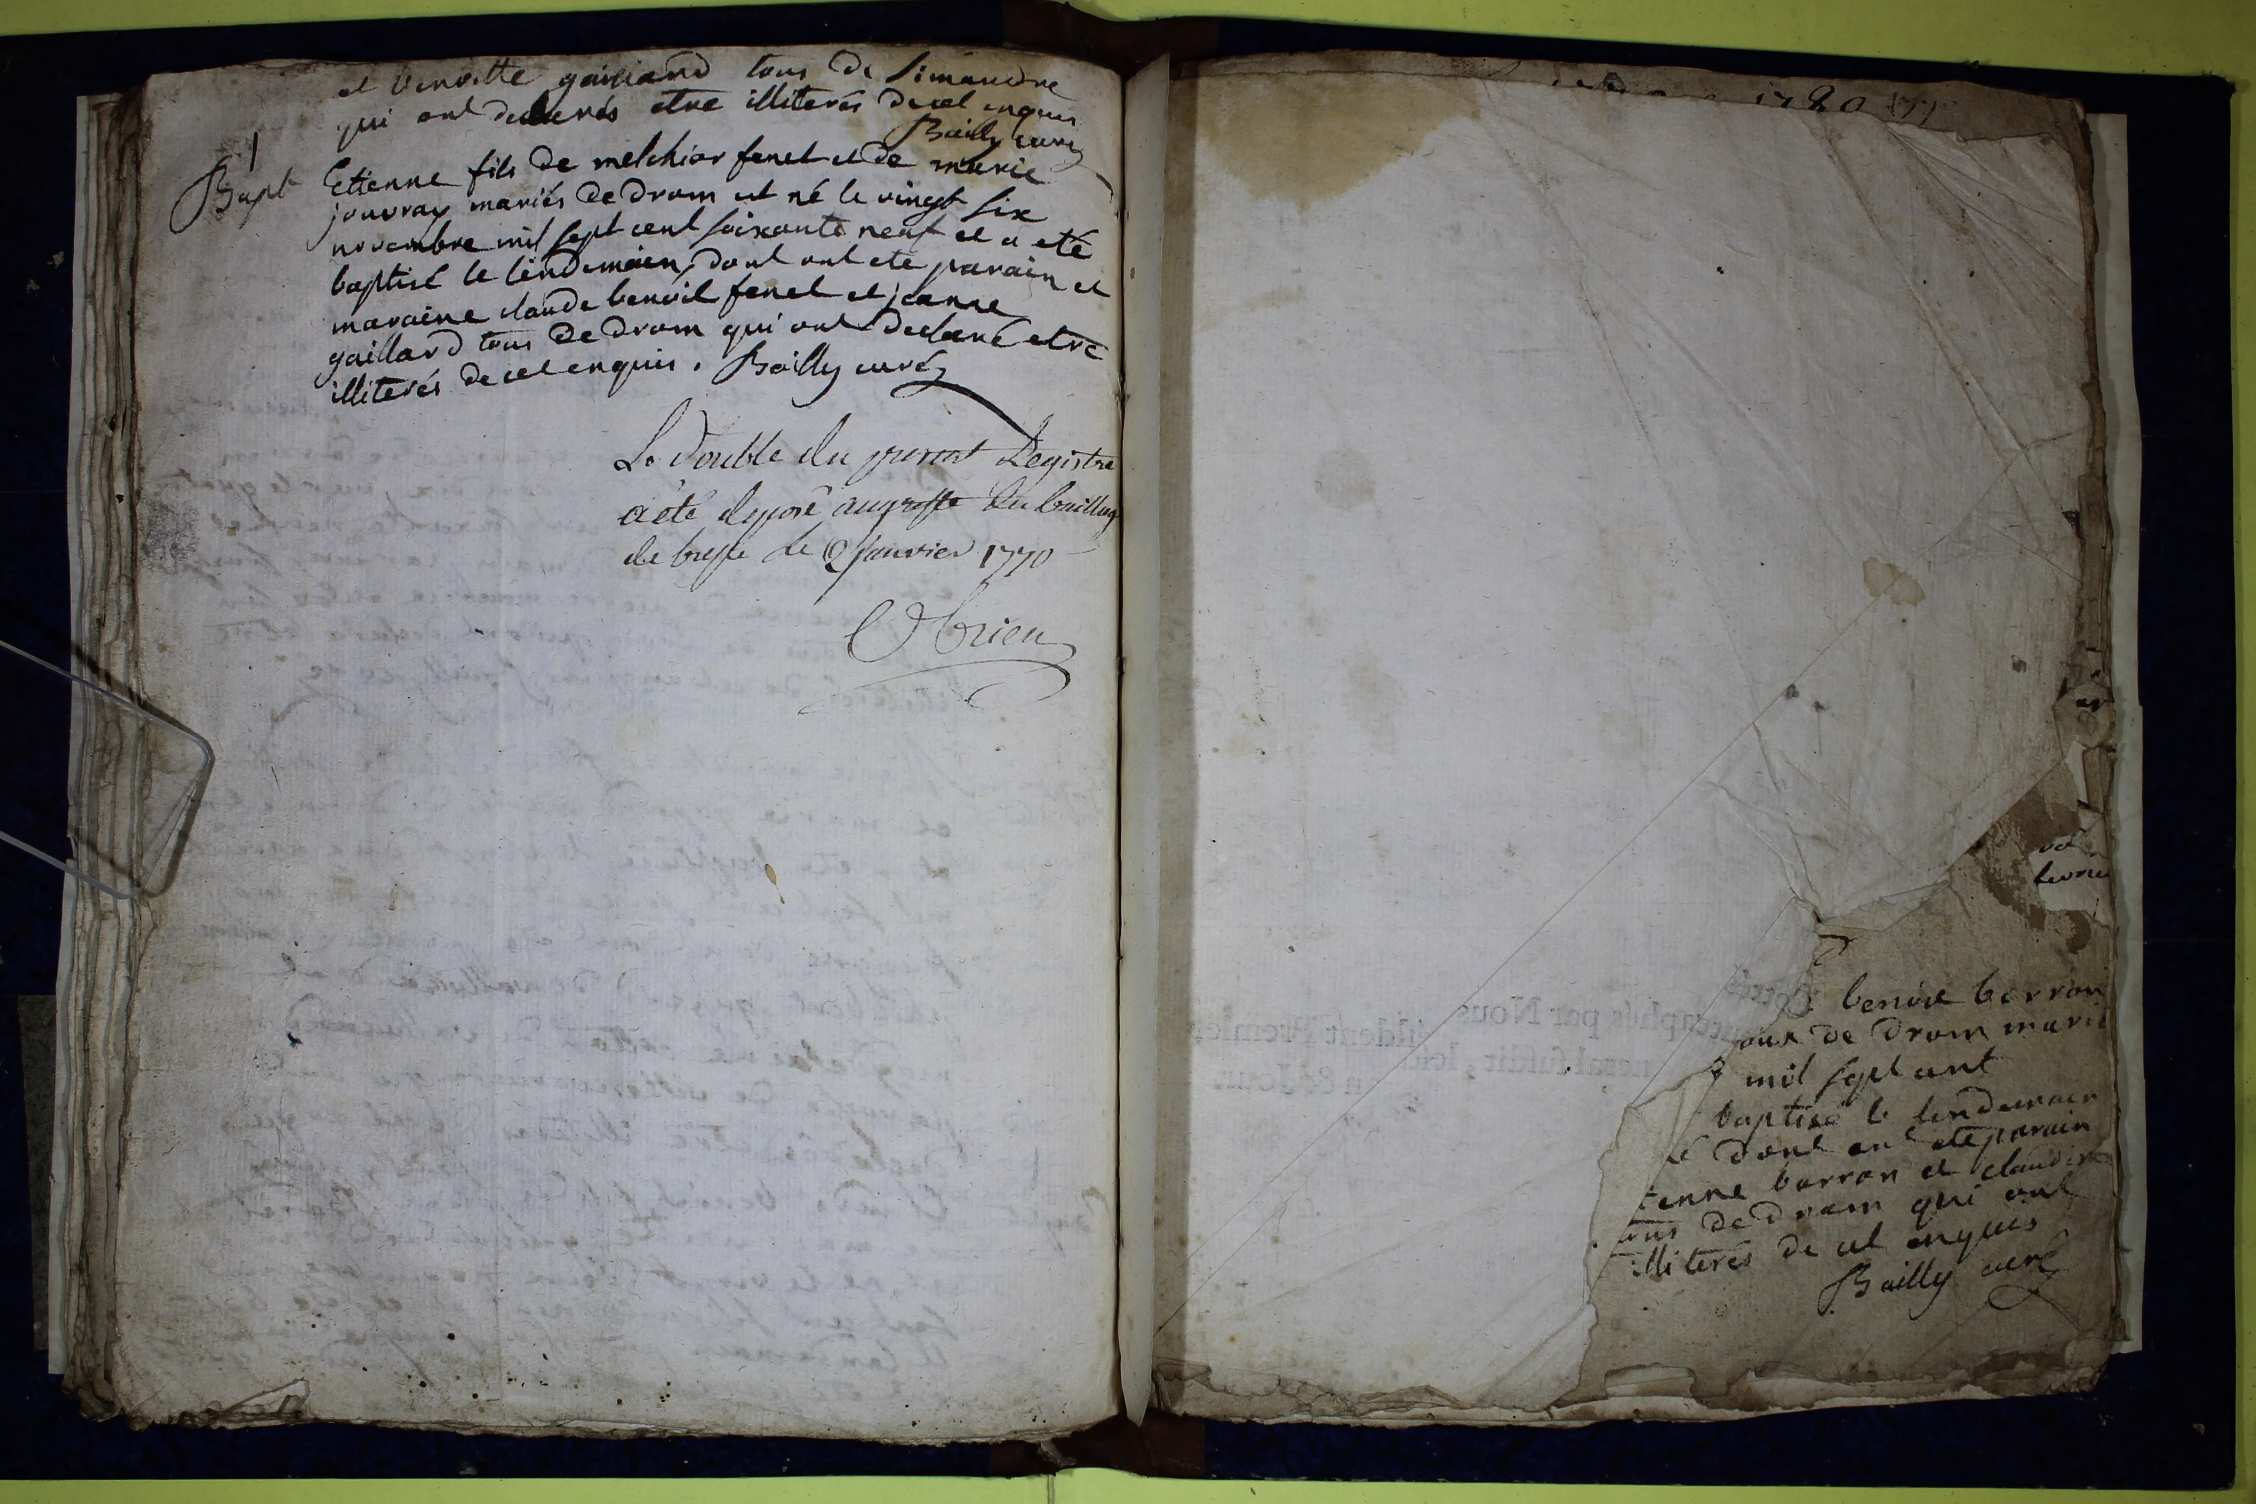 et benoitte gaillard tous de Simandre
qui ont declarés etre illiterés de cel enquis
Bailly curé
Bapt
Etienne fils de melchior fenet et de marie
jouvray mariés de drom est né le vingt six
novembre mil sept cent soixante neuf et a eté
baptisé le lendemain, dont ont ete parain et
maraine claude benoit fenet et jeanne
gaillard tous de drom qui ont declaré etre
illiterés de cel enquis. Bailly curé
Le double du present Registre
a été deposé au greffe du bailliag
de bresse le 9 janvier 1770
Obrien
1780
benoit borron
de drom marié
mil sept cent
baptisé le lendemain
dont ont eté parain
tienne borron et claudine
ous de drom qui ont
illiterés de cel enquis
Bailly curé